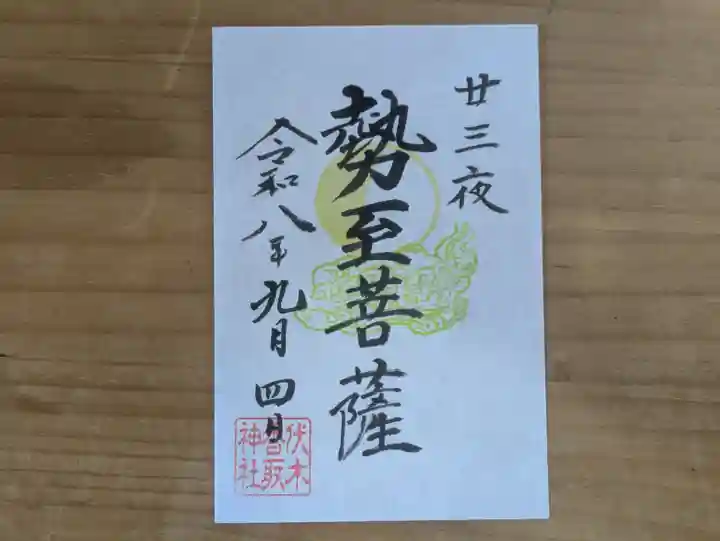 廿三夜
勢至菩薩
令和八年九月四日
伏木
香取
神社